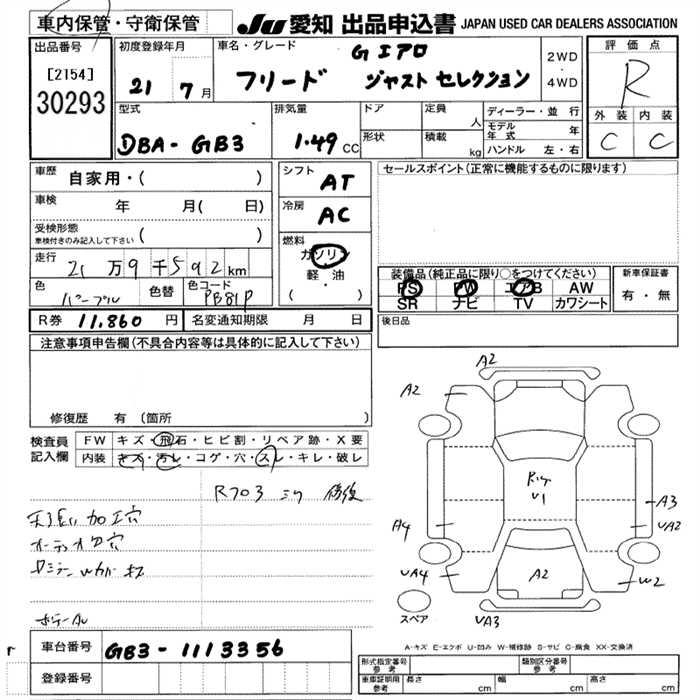 車内保管・守衛保管
JU 愛知 出品申込書 JAPAN USED CAR DEALERS ASSOCIATION
出品番号
[2154]
30293
初度登録年月
21 7 月
車名・グレード
G エアロ
フリード ジャスト セレクション
2WD
・
4WD
評価点
R
外装 内装
C C
型式
DBA-GB3
排気量
1.49 CC
ドア
形状
定員
人
積載
kg
ディーラー・並行
モデル年式 年
ハンドル 左・右
車歴
自家用・( )
車検
年 月( 日)
受検形態
車検付きのみ記入して下さい ( )
走行
21 万 9 千 592 km
色
パープル
色替
色コード
PB81P
シフト
AT
冷房
AC
燃料
ガソリン
軽・油
( )
セールスポイント(正常に機能するものに限ります)
装備品(純正品に限り○をつけてください)
PS PW エアB AW
SR ナビ TV カワシート
新車保証書
有・無
R券 11,860 円
名変通知期限 月 日
後日品
注意事項申告欄(不具合内容等は具体的に記入して下さい)
修復歴 有 (箇所 )
検査員
記入欄
FW キズ・飛石・ヒビ割・リペア跡・X要
内装 キズ・汚レ・コゲ・穴・スレ・キレ・破レ
加工穴
A2
A2
U1
A3
UA2
A4
UA4
A2
W2
UA3
スペア
A-キズ E-エクボ U-凹み W-補修跡 S-サビ C-腐食 XX-交換済
車台番号
GB3-1113356
登録番号
形式指定番号
参考
類別区分番号
参考
車庫証明用
参考
長さ cm 幅 cm 高さ cm